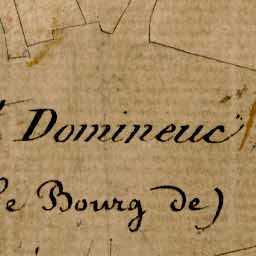 Domineuc
Le Bourg de)